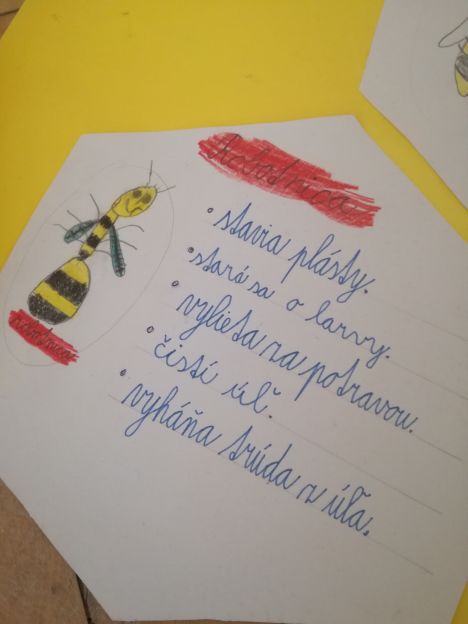 Robotnica
• stavia plásty.
• stará sa o larvy.
• vylieta za potravou.
• čistí úľ.
• vyháňa trúda z úľa.
robotnica